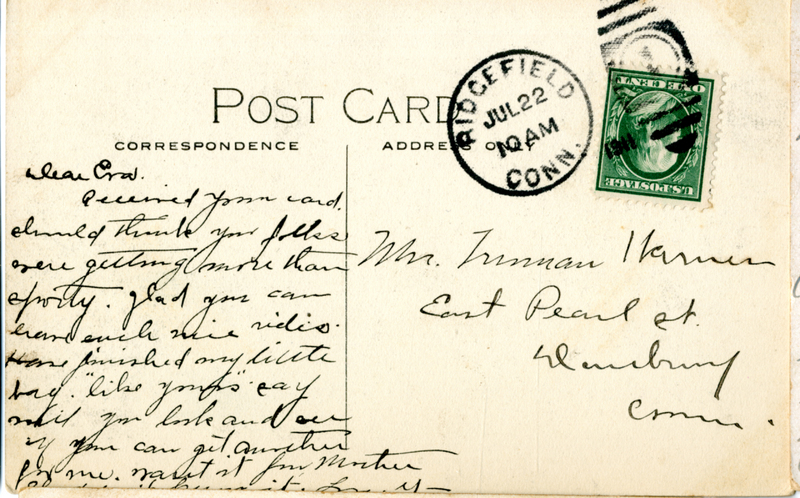 POST CARD
CORRESPONDENCE
ADDRESS ONLY
RIDGEFIELD
JUL 22
10 AM
1911
CONN.
ONE CENT
U.S. POSTAGE
Dear Eva.
Received your card.
should think you folks
were getting more than
sporty. Glad you can
have such nice rides.
Have finished my little
bag. "like yours" say
will you look and see
if you can get another
for me. want it for Mother
Mr. Truman Warner
East Pearl st.
Danbury
Conn.